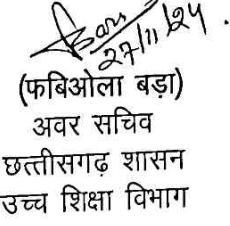 27/11/24.
(फबिओला बड़ा)
अवर सचिव
छत्तीसगढ़ शासन
उच्च शिक्षा विभाग